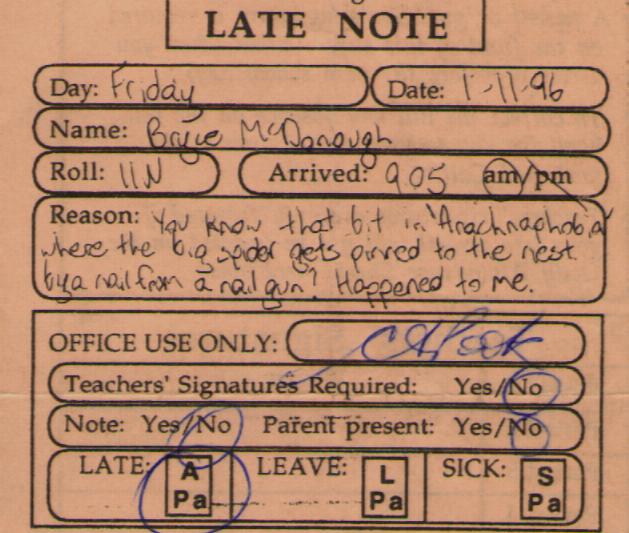 LATE NOTE
Day: Friday Date: 1-11-96
Name: Bryce McDonough
Roll: 11N Arrived: 9.05 am/pm
Reason: You know that bit in 'Arachnaphobia'
where the big spider gets pinned to the nest
by a nail from a nail gun? Happened to me.
OFFICE USE ONLY:
Teachers' Signatures Required: Yes/No
Note: Yes/No Parent present: Yes/No
LATE: A Pa LEAVE: L Pa SICK: S Pa